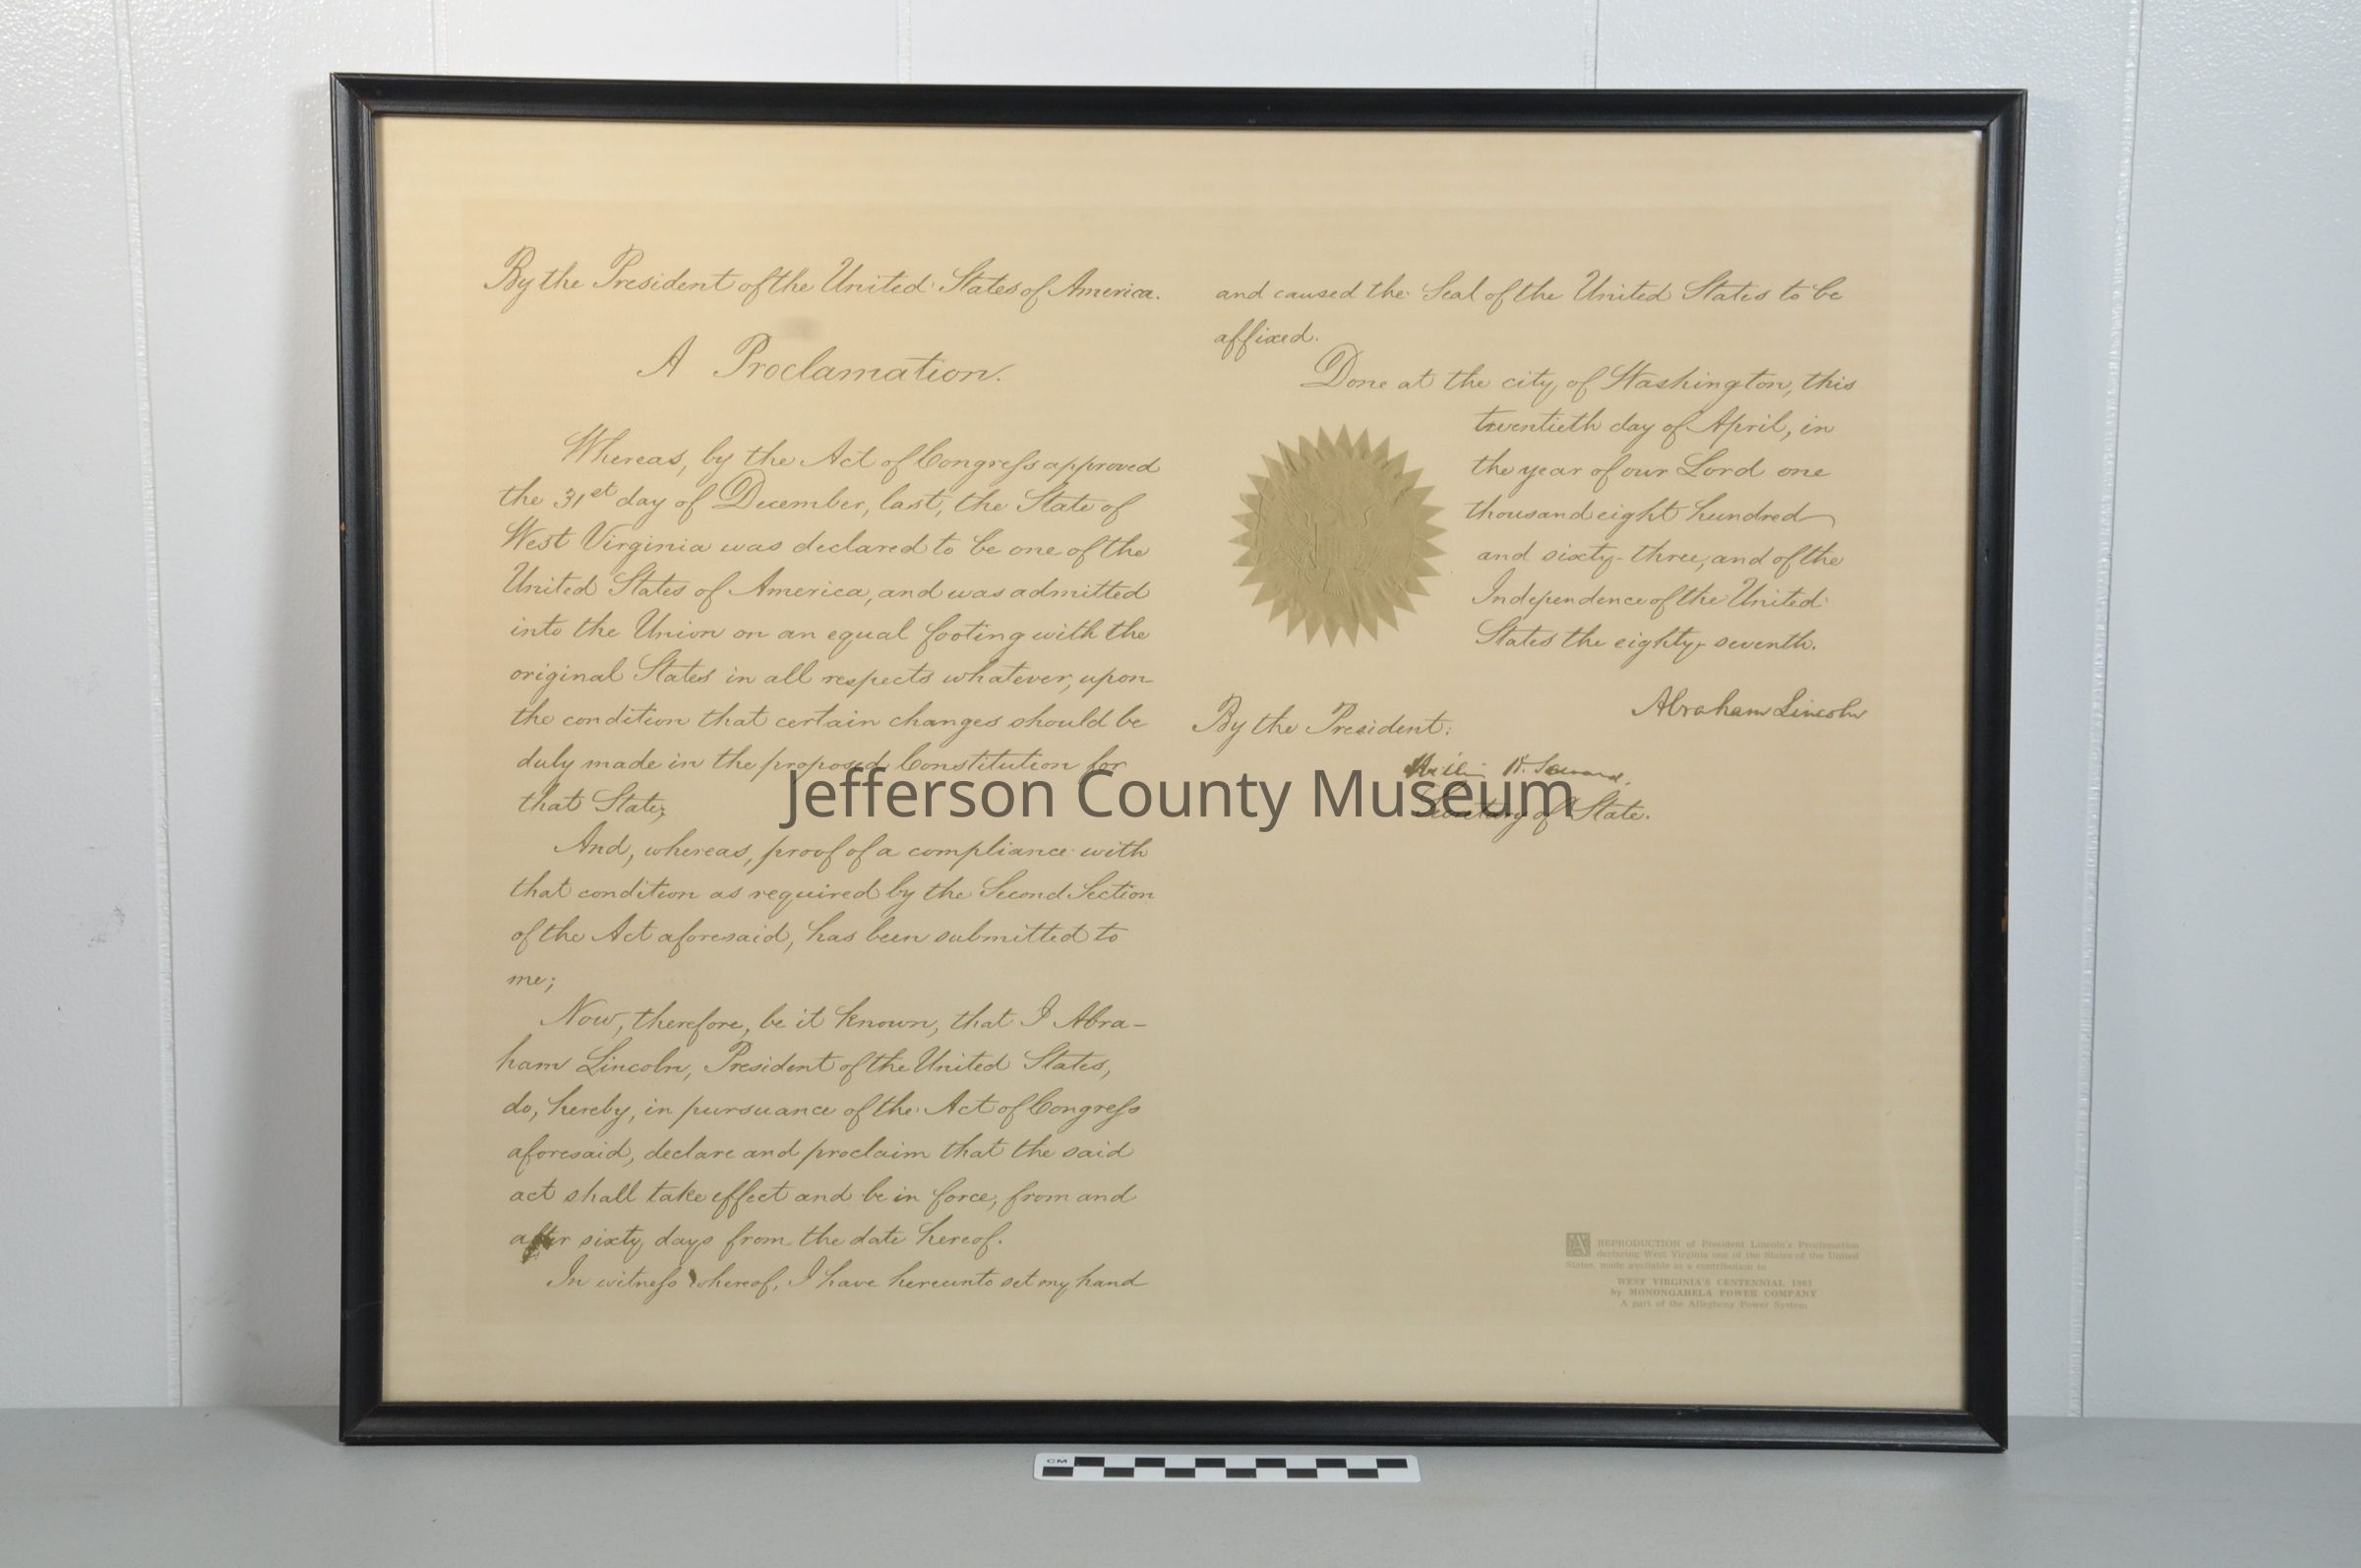 By the President of the United States of America.
A Proclamation.
Whereas, by the Act of Congress approved
the 31st day of December, last, the State of
West Virginia was declared to be one of the
United States of America, and was admitted
into the Union on an equal footing with the
original States in all respects whatever, upon
the condition that certain changes should be
duly made in the proposed Constitution for
that State;
And, whereas, proof of a compliance with
that condition as required by the Second Section
of the Act aforesaid, has been submitted to
me;
Now, therefore, be it known, that I Abra-
ham Lincoln, President of the United States,
do, hereby, in pursuance of the Act of Congress
aforesaid, declare and proclaim that the said
act shall take effect and be in force, from and
after sixty days from the date hereof.
In witness whereof, I have hereunto set my hand
and caused the Seal of the United States to be
affixed.
Done at the city of Washington, this
twentieth day of April, in
the year of our Lord one
thousand eight hundred
and sixty-three, and of the
Independence of the United
States the eighty-seventh.
Abraham Lincoln
By the President:
William H. Seward,
Secretary of State.
Jefferson County Museum
REPRODUCTION of President Lincoln's Proclamation
declaring West Virginia one of the States of the United
States, made available as a contribution to
WEST VIRGINIA'S CENTENNIAL 1963
by MONONGAHELA POWER COMPANY
A part of the Allegheny Power System
CM